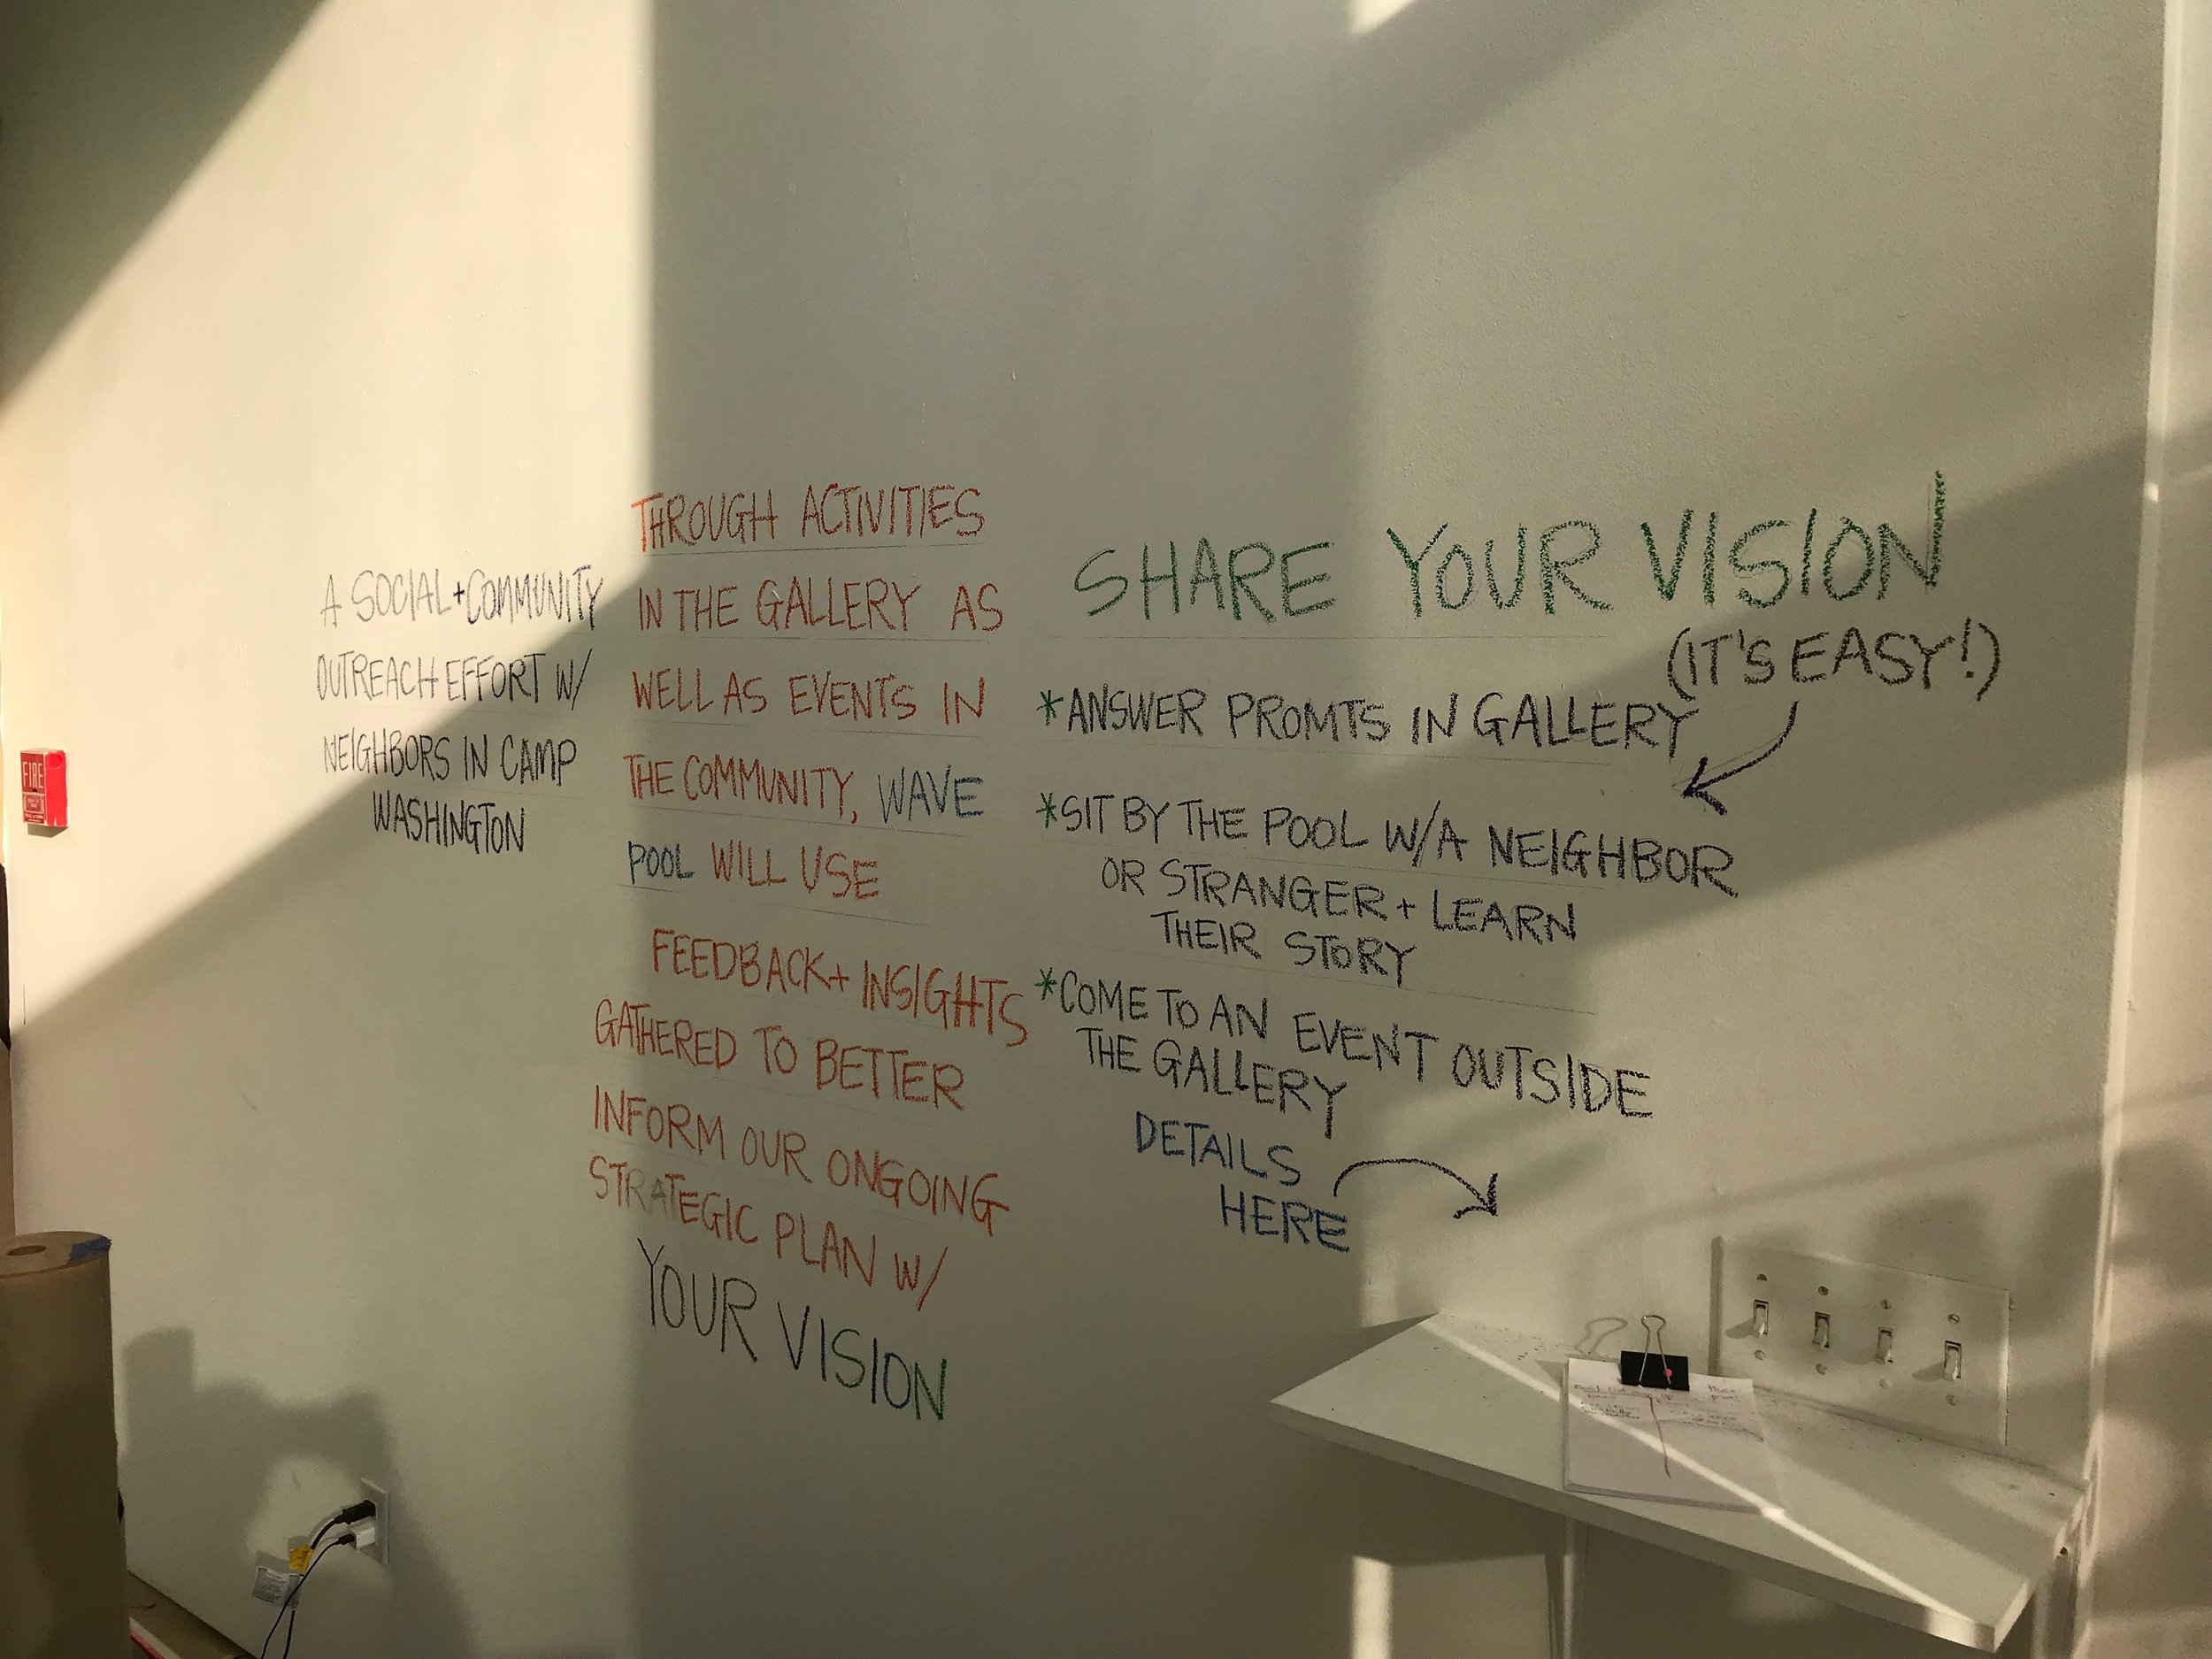 A SOCIAL + COMMUNITY
OUTREACH EFFORT W/
NEIGHBORS IN CAMP
WASHINGTON
THROUGH ACTIVITIES
IN THE GALLERY AS
WELL AS EVENTS IN
THE COMMUNITY, WAVE
POOL WILL USE
FEEDBACK + INSIGHTS
GATHERED TO BETTER
INFORM OUR ONGOING
STRATEGIC PLAN W/
YOUR VISION
SHARE YOUR VISION
(IT'S EASY!)
*ANSWER PROMTS IN GALLERY
*SIT BY THE POOL W/A NEIGHBOR
OR STRANGER + LEARN
THEIR STORY
*COME TO AN EVENT OUTSIDE
THE GALLERY
DETAILS
HERE
FIRE